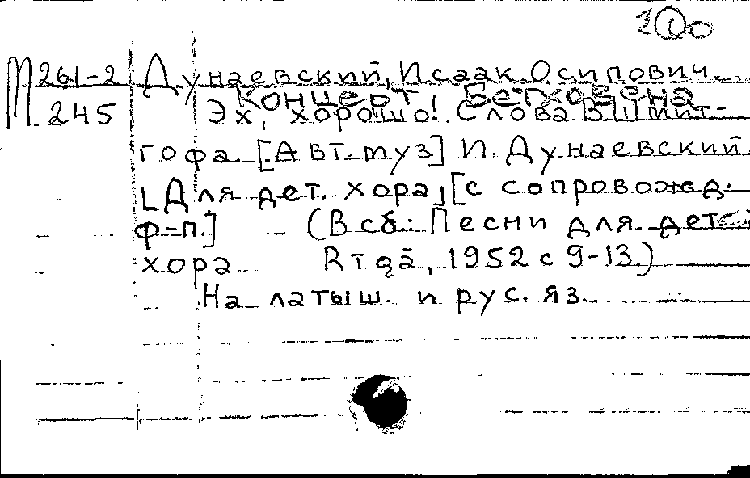 100
М261-2 Дунаевский, Исаак Осипович.
Концерт Бетховена
245 Эх, хорошо! Слова В. Шмит-
гофа [Авт. муз] И. Дунаевский
[Для дет. хора] [с сопровожд.
ф-п.] (В сб: Песни для дет.
хора Rīgā, 1952 с 9-13.)
На латыш. и рус. яз.